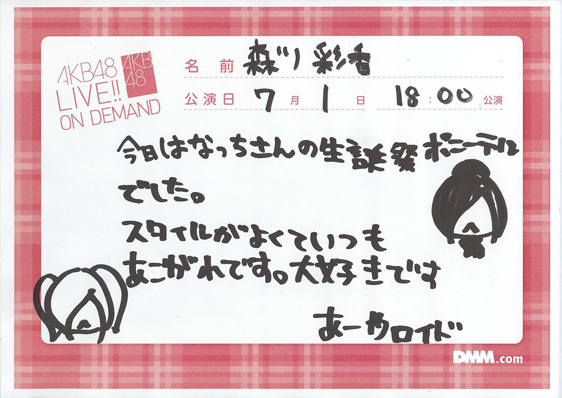 AKB48
LIVE!!
ON DEMAND
AKB
48
名前 森川 彩香
公演日 7月1日 18:00 公演
今日はなっちさんの生誕祭ポニーテール
でした。
スタイルがよくていつも
あこがれです。大好きです
あーやロイド
DMM.com